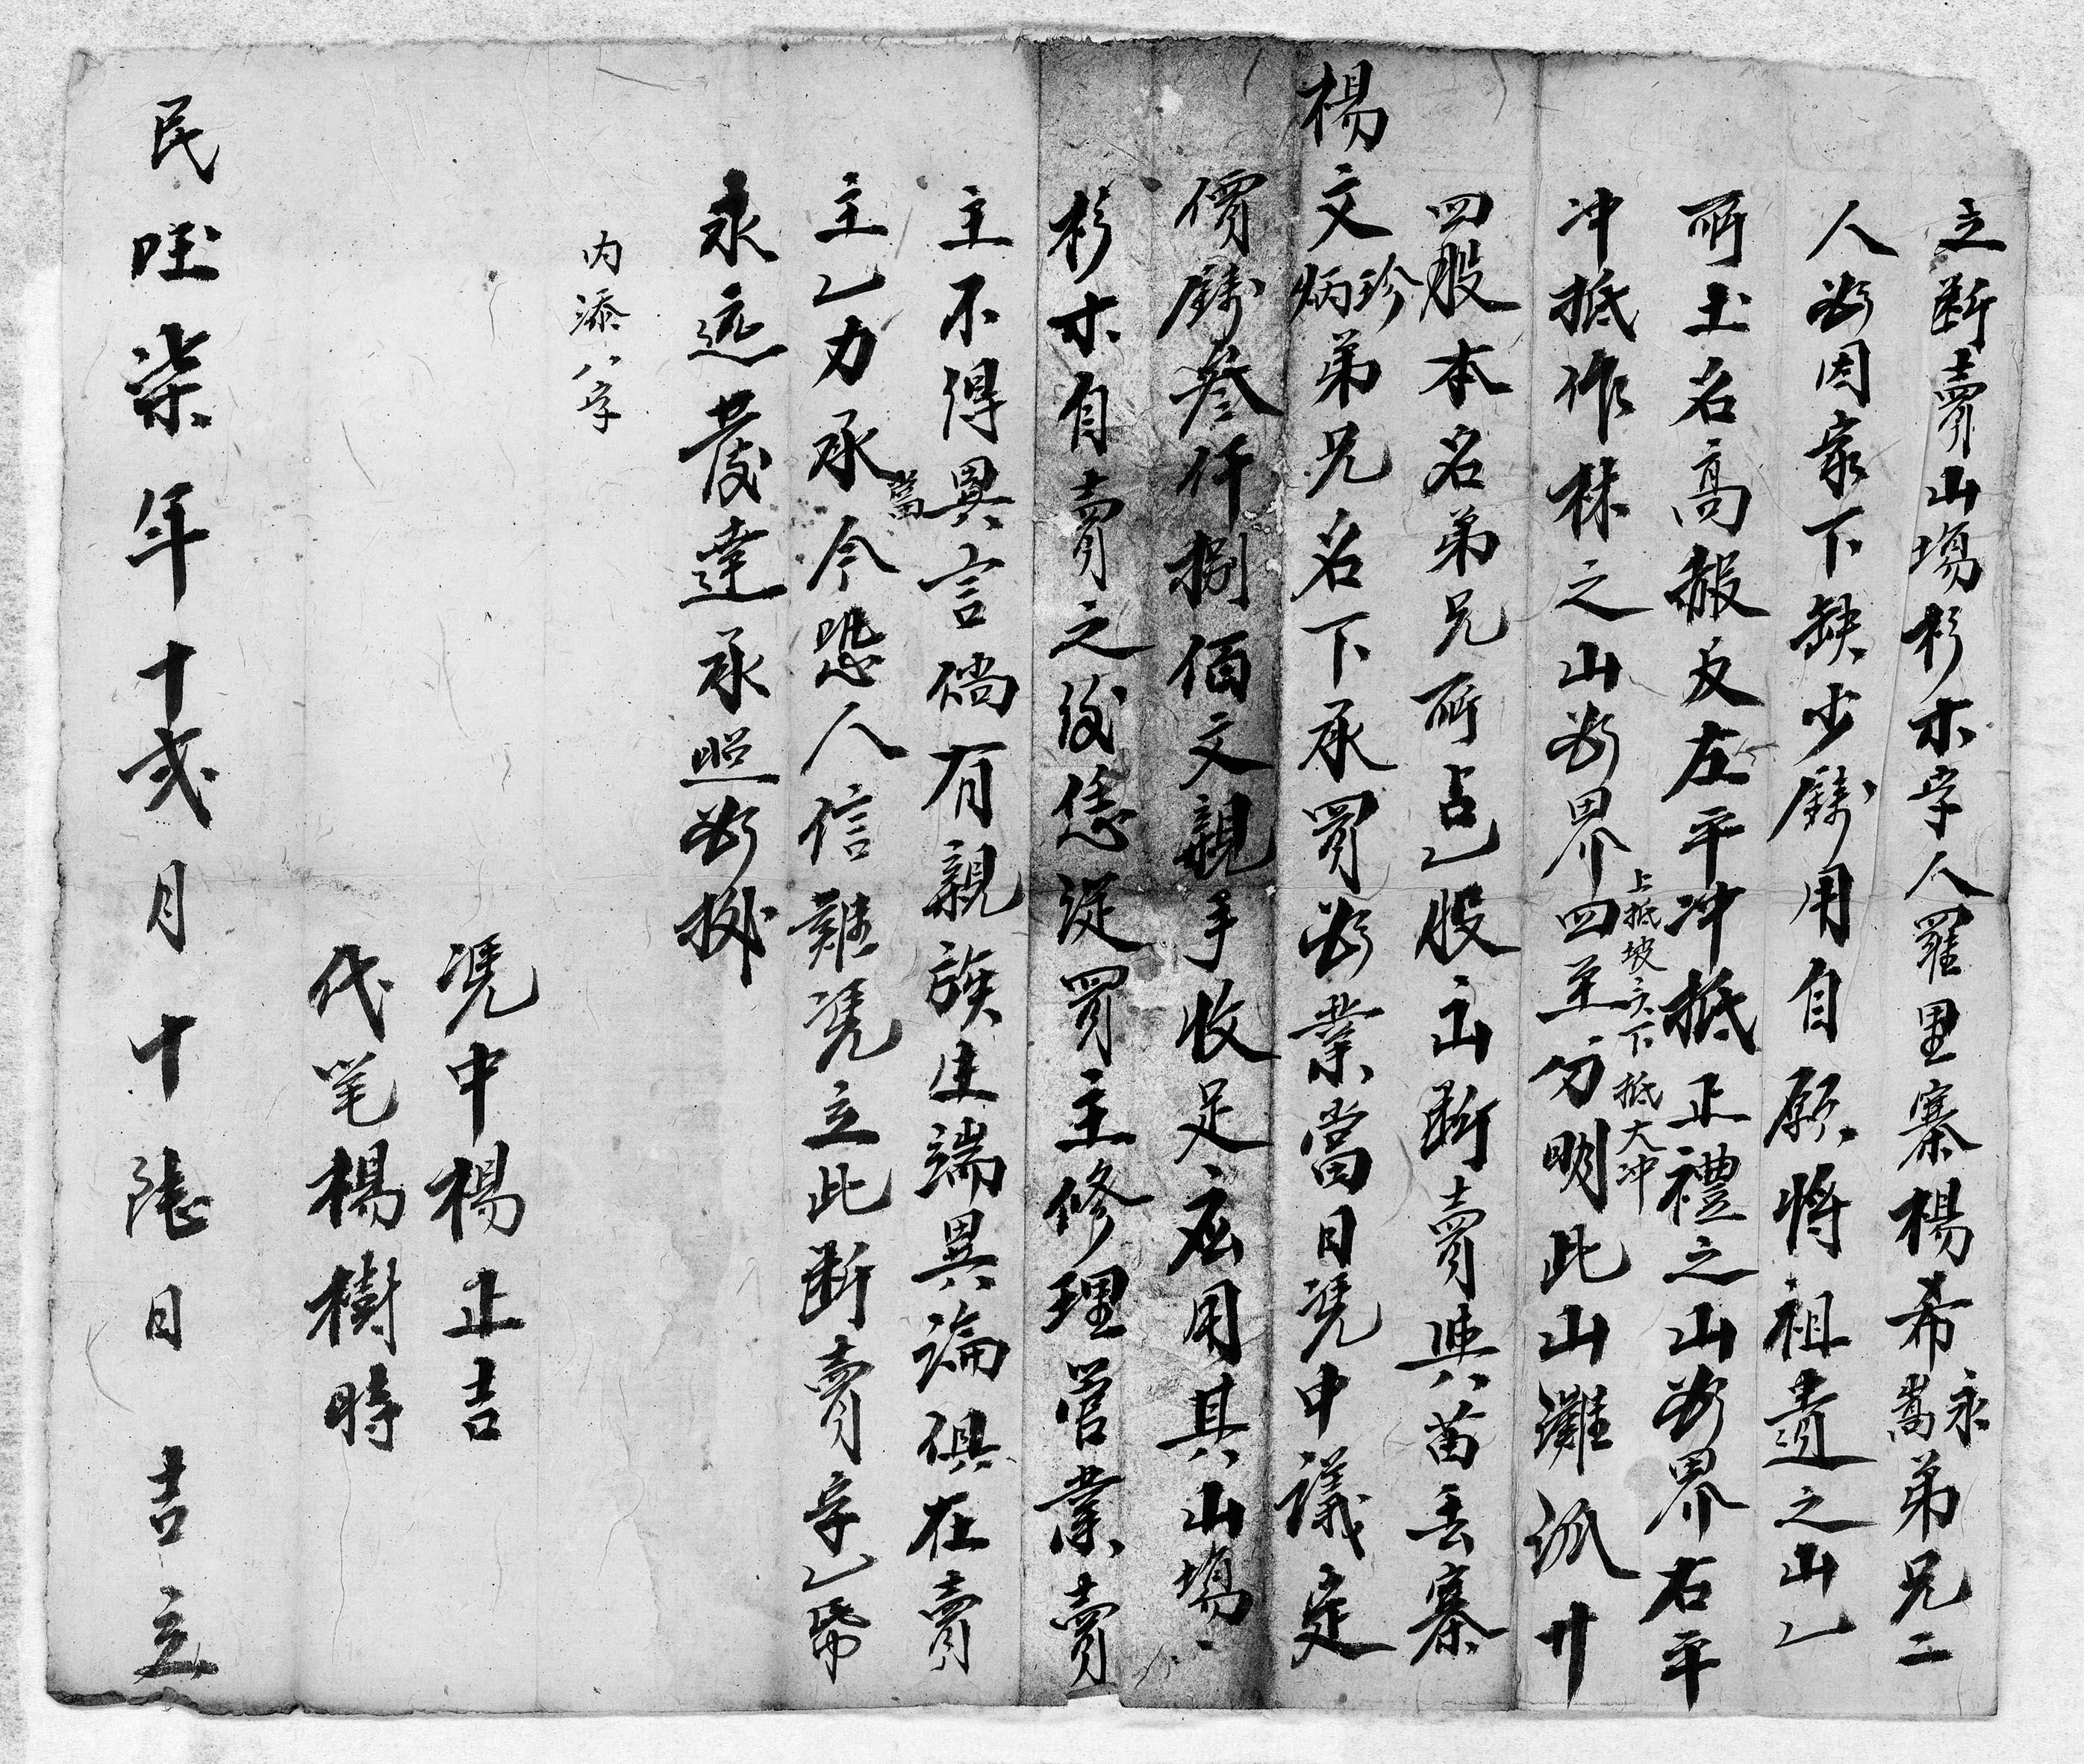 立断賣山塲杉木字人羅里寨楊希永嵩弟兄二
人為因家下缺少錢用自願將祖遺之山乙
所土名高報反左平冲抵正禮之山為界右平
冲抵作林之山為界四至分明此山灘派廿
上抵坡交下抵大冲
四股本名弟兄所占乙股立断賣與苗丢寨
楊文炳珍弟兄名下承買為業當日凴中議定
價錢叁仟捌佰文親手收足应用其山塲
杉木自賣之後恁從買主修理管業賣
主不得異言倘有親族生端異論俱在賣
主乙力承當今恐人信難凴立此断賣字乙帋
永遠發達承照為據
内添八字
凴中楊正吉
代笔楊樹時
民国柒年十弍月十陸日吉立